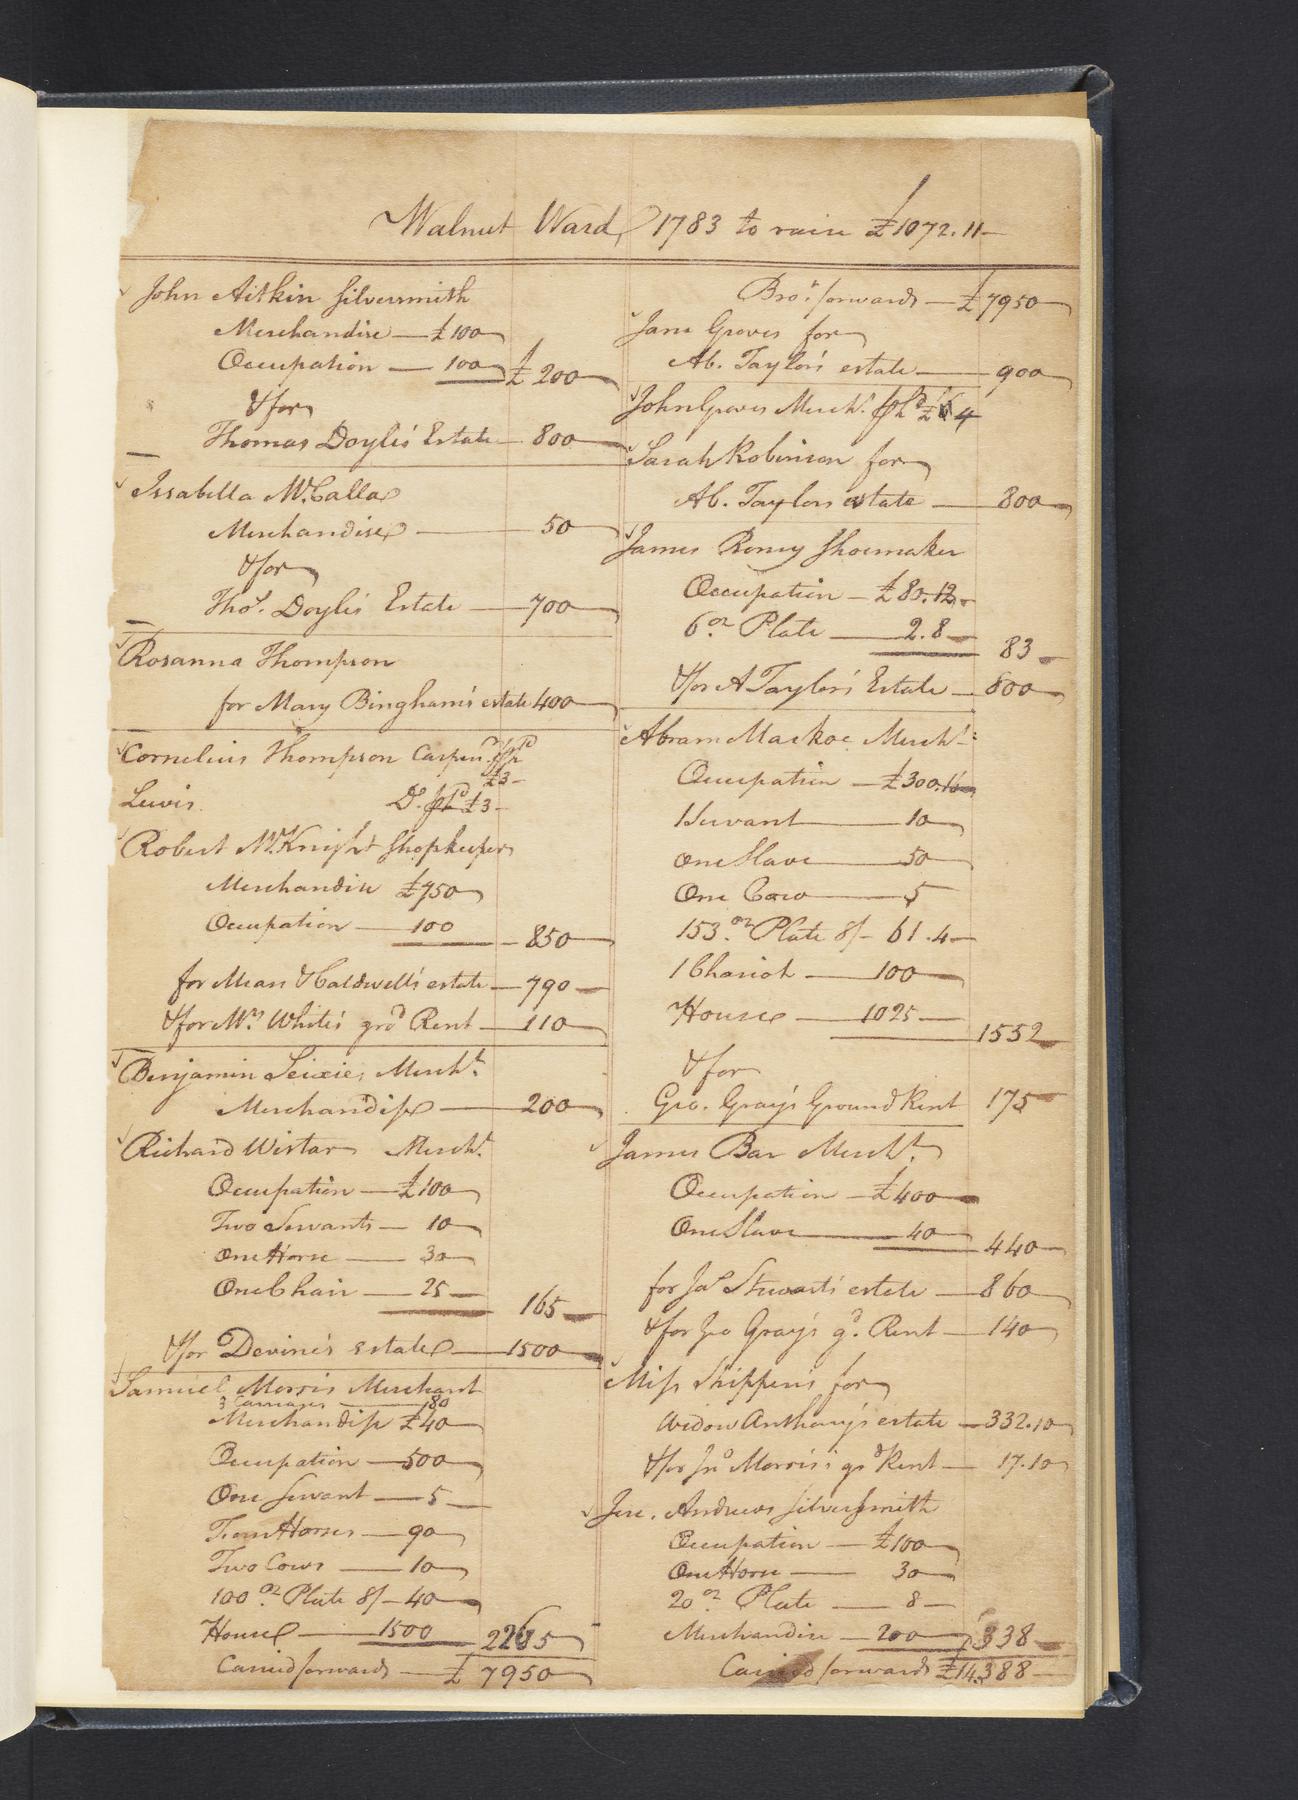 Walnut Ward 1783 to raise £1072.11
John Aitkin Silversmith
Merchandise — £100
Occupation — 100 £200
& for
Thomas Doyle's Estate — 800
Issabella McCalla
Merchandise — 50
& for
Thos. Doyle's Estate — 700
Rosanna Thompson
for Mary Bingham's estate 400
Cornelius Thompson Carpenr.
£3
Lewis Do. £3
Robert McKnight Shopkeeper
Merchandise £750
Occupation — 100 850
for Mears & Caldwell's estate — 790
& for Mrs White's grd Rent — 110
Benjamin Seixies Mercht.
Merchandise — 200
Richard Wistar Mercht.
Occupation — £100
Two Servants — 10
One Horse — 30
One Chair — 25 165
& for Devine's estate — 1500
Samuel Morris Merchant
3 Carriages — 80
Merchandise £40
Occupation — 500
One Servant — 5
Two Horses — 90
Two Cows — 10
100 oz. Plate 8/ — 40
House — 1500 2265
Carried forwards — £7950
Brot. forwards — £7950
Jane Groves for
Ab. Taylor's estate — 900
John Groves Mercht. £ 4
Sarah Robinson for
Ab. Taylors estate — 800
James Roney Shoemaker
Occupation — £80.12
6 oz. Plate — 2.8 83
& for A Taylor's Estate — 800
Abram Markoe Mercht.
Occupation — £300.16
1 Servant — 10
One Slave — 50
One Cow — 5
153 oz. Plate 8/ — 61.4
1 Chariot — 100
House — 1025 1552
& for
Geo. Gray's Ground Rent 175
James Bar Mercht.
Occupation — £400
One Slave — 40 440
for Jas Stewart's estate — 860
& for Geo Gray's gd. Rent — 140
Miss Shippen's for
Widow Anthony's estate — 332.10
& for Jno Morris's gd Rent — 17.10
Jere. Andrews Silversmith
Occupation — £100
One Horse — 30
20 oz. Plate — 8
Merchandise — 200 338
Carried forwards £14,388